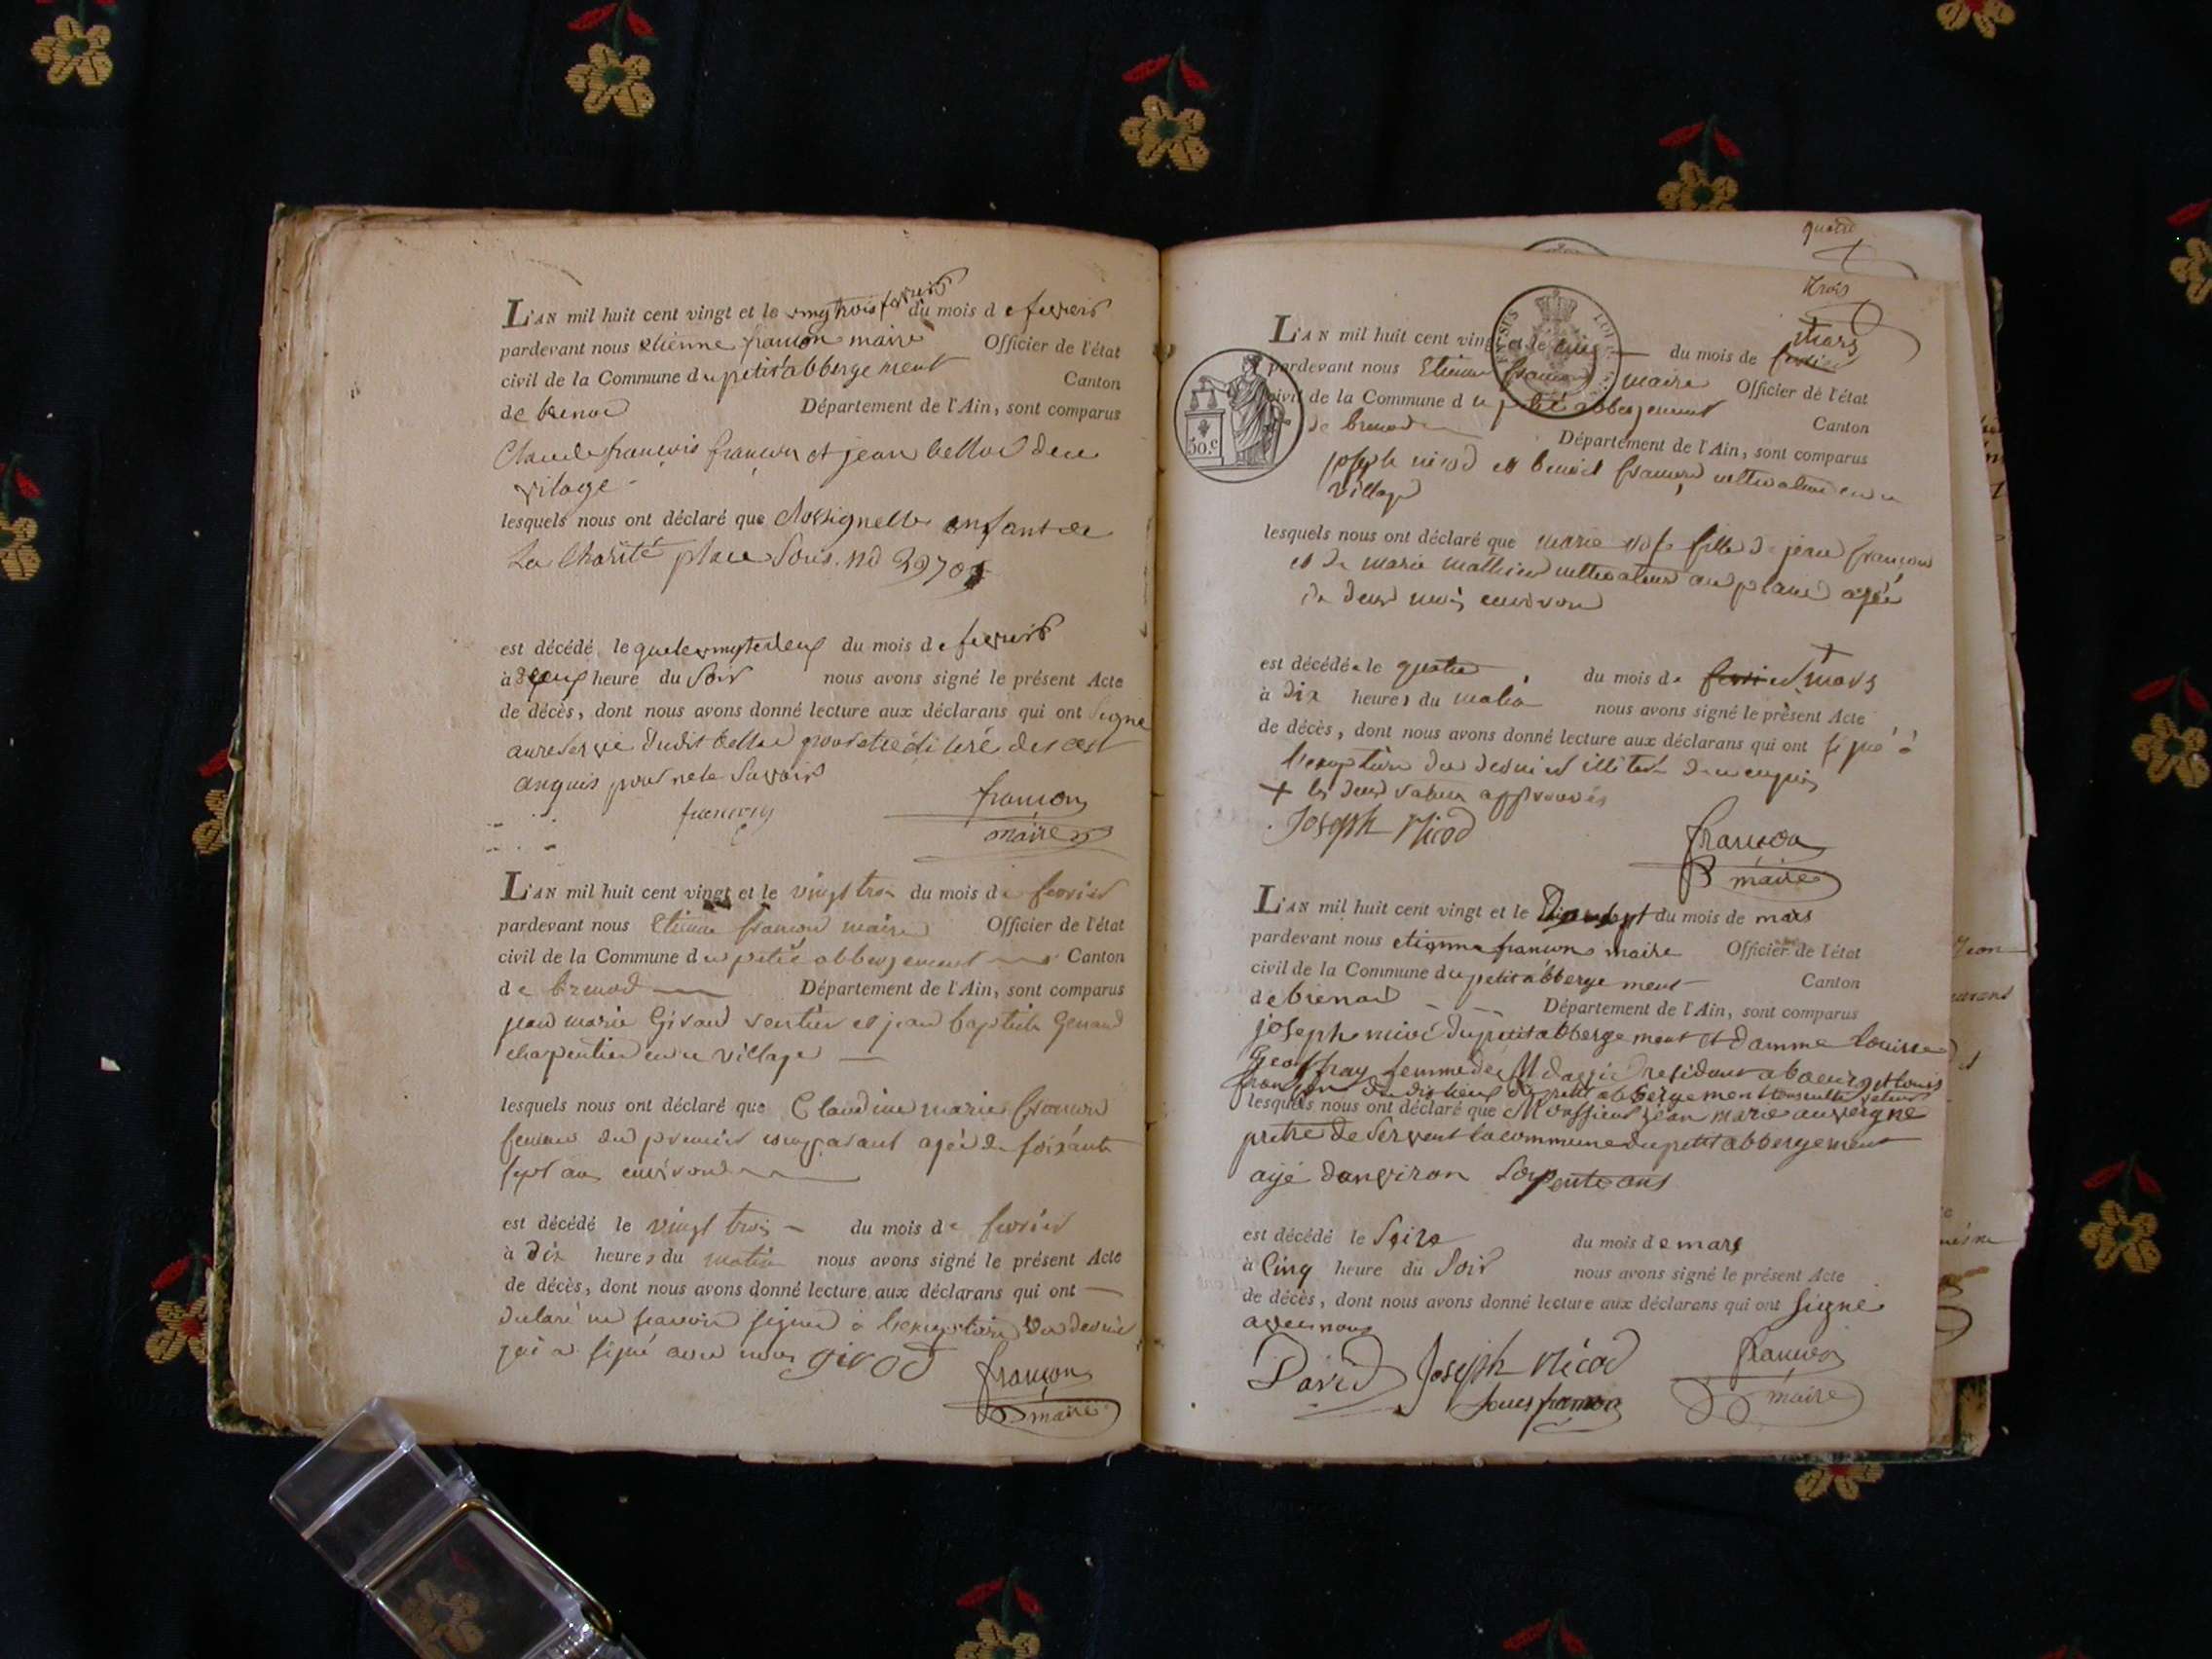 L'AN mil huit cent vingt et le vingtrois fevrier du mois de fevrier
pardevant nous etienne françon maire Officier de l'état
civil de la Commune du petit abbergement Canton
de brenod Département de l'Ain, sont comparus
Claude françois françon et jean bellod du
vilage
lesquels nous ont déclaré que enfant de
La Charité place Sous. no
est décédé le du mois de fevrier
à deux heure du Soir nous avons signé le présent Acte
de décès, dont nous avons donné lecture aux déclarans qui ont signé
dudit bellod de cest
anquis pour ne le Savoir
françon françon
maire
L'AN mil huit cent vingt et le vingt trois du mois de fevrier
pardevant nous Etienne françon maire Officier de l'état
civil de la Commune du petit abbergement Canton
de brenod Département de l'Ain, sont comparus
jean marie Girod rentier et jean baptiste Genand
charpentier en ce village
lesquels nous ont déclaré que Claudine marie françon
femme du premier comparant agée de soixante
sept ans environ
est décédé le vingt trois du mois de fevrier
à Dix heures du matin nous avons signé le présent Acte
de décès, dont nous avons donné lecture aux déclarans qui ont
declaré ne scavoir signer à du
qui a signé avec nous girod françon
maire
quatre
trois
mars
L'AN mil huit cent vingt et le cinq du mois de
pardevant nous Etienne françon maire Officier de l'état
civil de la Commune du petit abbergement Canton
de brenod Département de l'Ain, sont comparus
50.c
joseph nicod et benoit françon cultivateur en ce
village
lesquels nous ont déclaré que marie fille de jean françon
et de marie mathieu cultivateur au plane agée
de deux mois environ
est décédée le quatre du mois de mars
à Dix heures du matin nous avons signé le présent Acte
de décès, dont nous avons donné lecture aux déclarans qui ont signé à
l'exception du dernier illiteré de ce enquis
+ les deux approuvés
Joseph Nicod
françon
maire
L'AN mil huit cent vingt et le Dix sept du mois de mars
pardevant nous etienne françon maire Officier de l'état
civil de la Commune du petit abbergement Canton
de brenod Département de l'Ain, sont comparus
joseph nicod du petit abbergement et damme Louisse
Geoffray femme de residant a bourg et louis
françon du petit abbergement
lesquels nous ont déclaré que Monssieur jean marie auvergne
pretre deServent la commune du petit abbergement
agé danviron ans
est décédé le Seize du mois de mars
à Cinq heure du Soir nous avons signé le présent Acte
de décès, dont nous avons donné lecture aux déclarans qui ont signé
avec nous
David Joseph Nicod françon
Louis françon maire